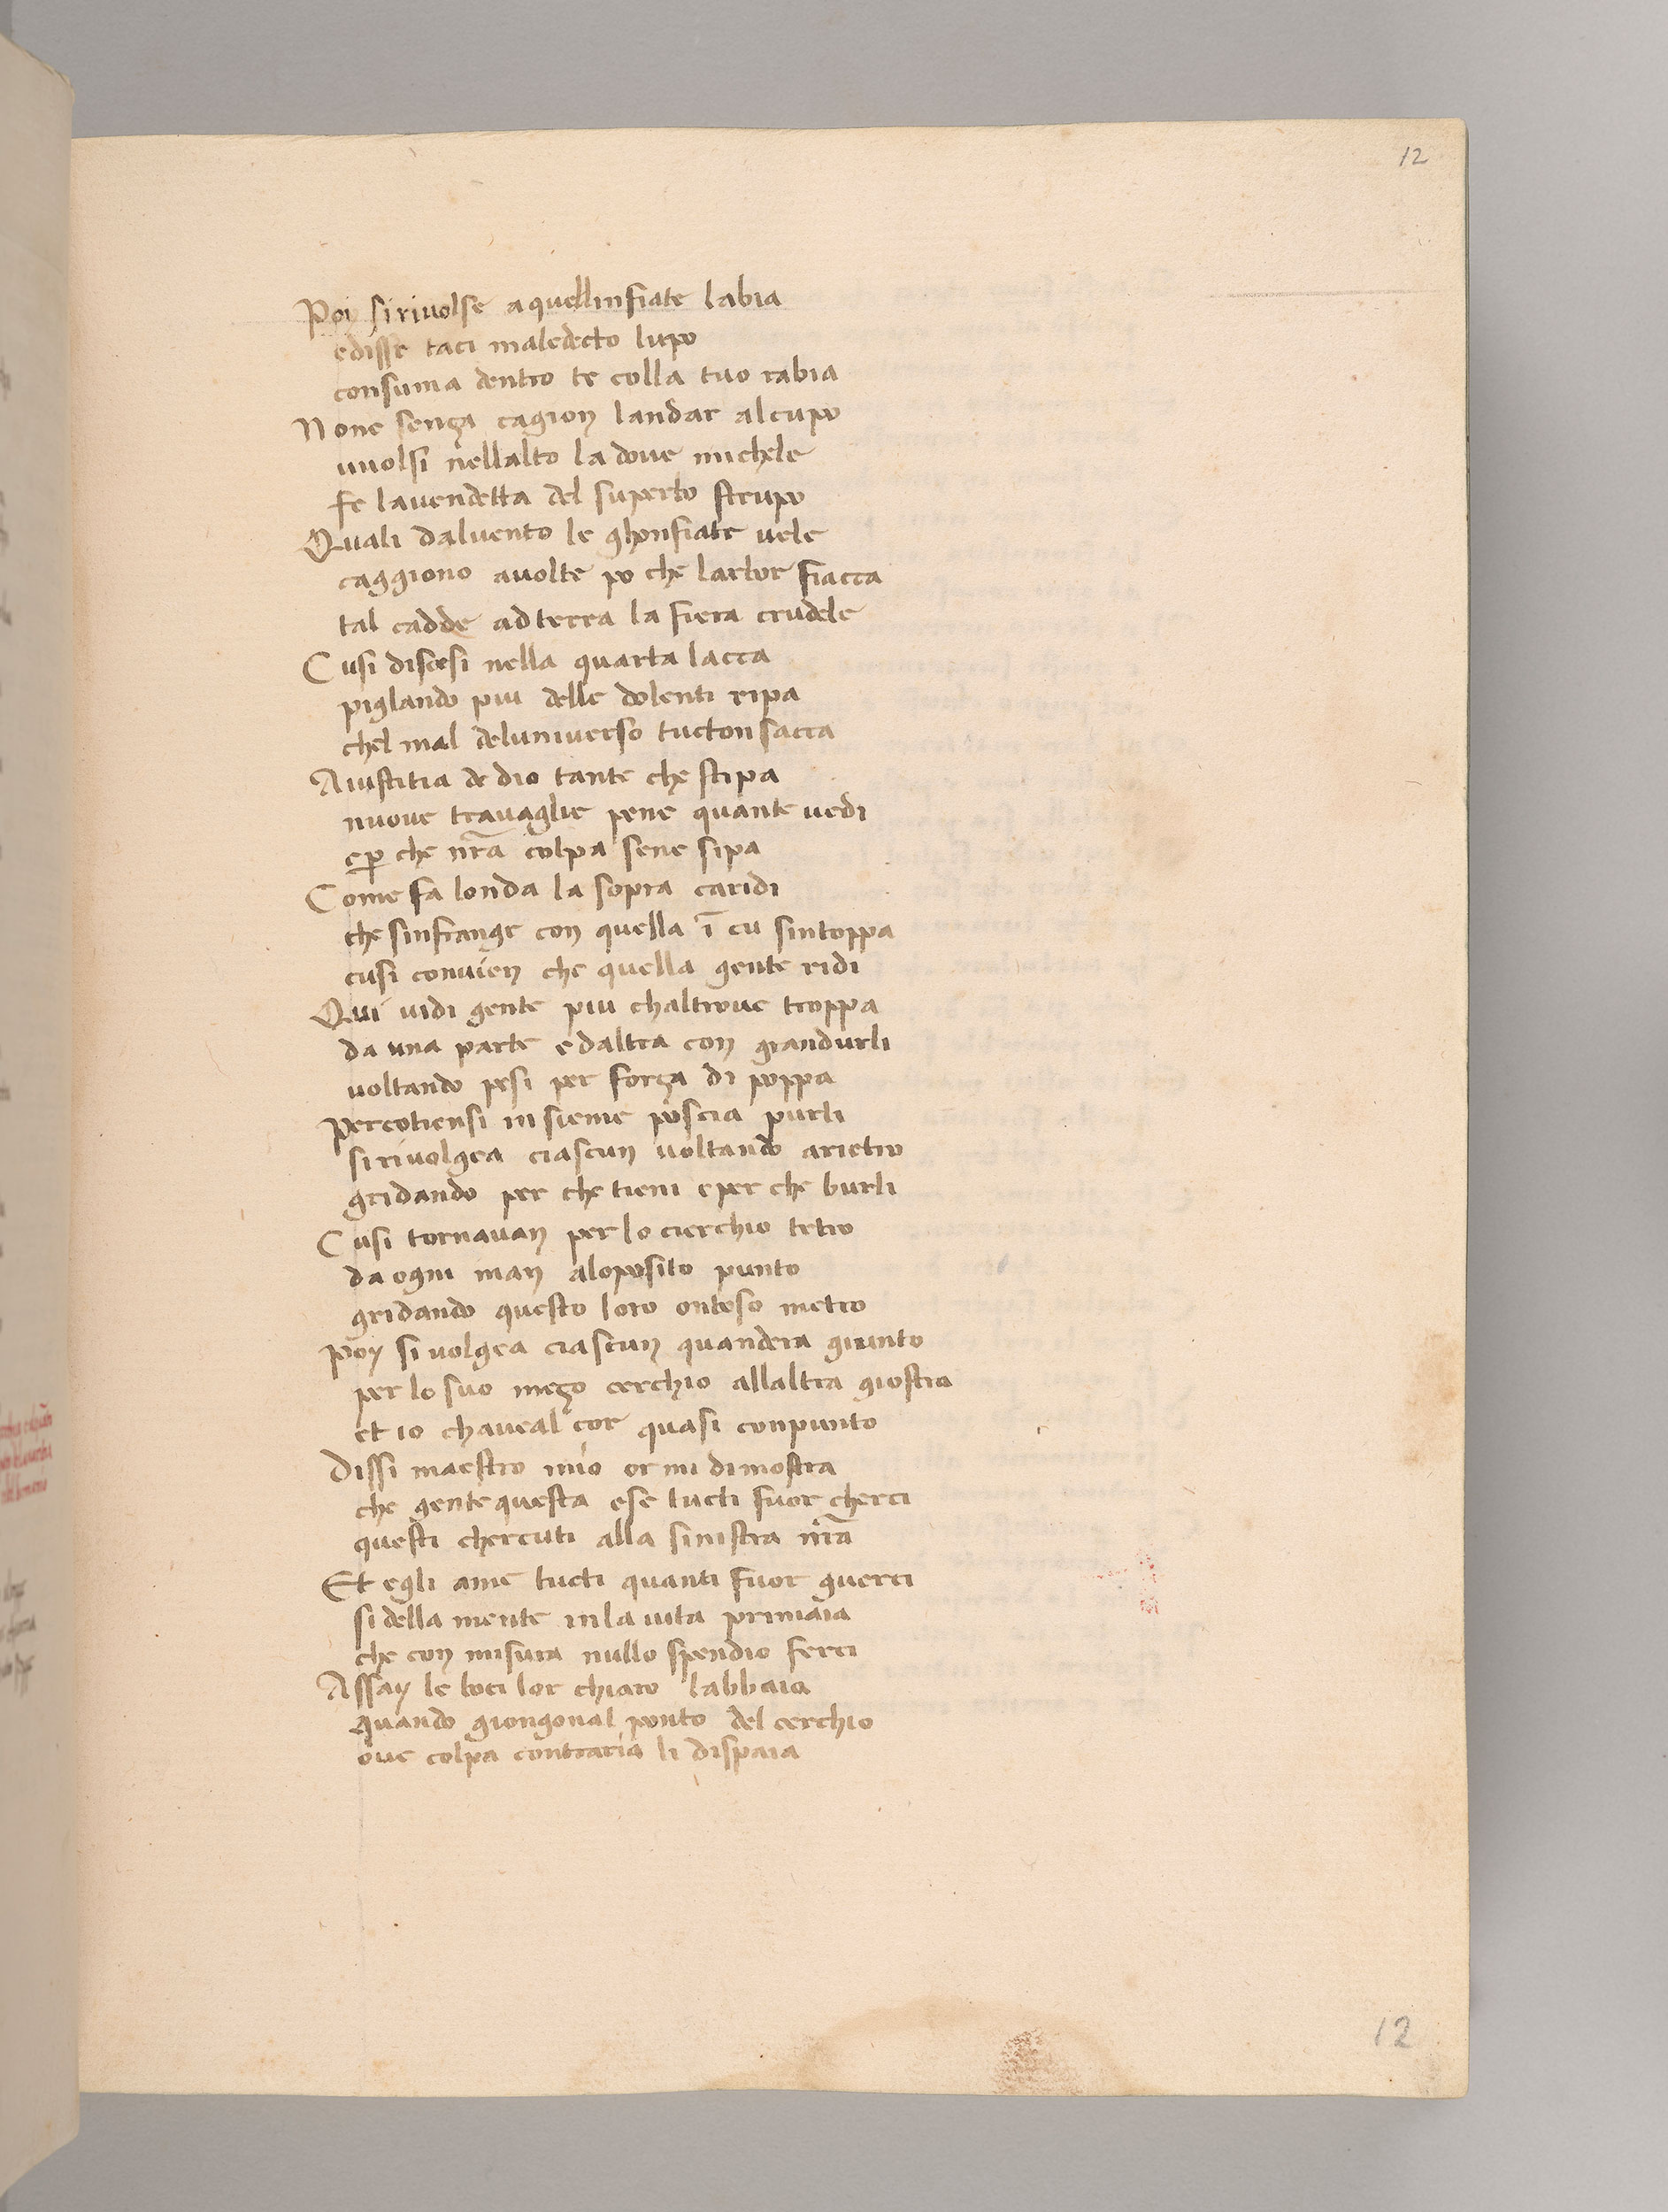 12
Poy si rivolse a quellinfiate labia
e disse taci maledecto lupo
consuma dentro te colla tuo rabia
None senza cagion landar al cupo
vuolsi nellalto la dove michele
fe la vendetta del superbo strupo
Quali dal vento le ghonfiate vele
caggiono avolte po che larbor fiacca
tal cadde ad terra la fiera crudele
Cusi discesi nella quarta lacca
piglando piu delle dolenti ripa
chel mal del universo tucton sacca
A iustitia de dio tante che stipa
nuove travaglie pene quante vedi
e p̱ che nr̄a colpa sene sipa
Come fa londa la sopra caridi
che sinfrange con quella ī cu sintoppa
cusi convien che quella gente ridi
Qui vidi gente piu chaltrove troppa
da una parte e daltra con grandurli
voltando pesi per forza di poppa
Percotiensi insieme poscia purli
si rivolgea ciascun voltando arietro
gridando per che tieni e per che burli
Cusi tornavan per lo cierchio tetro
da ogni man aloposito punto
gridando questo loro ontoso metro
Poy si volgea ciascun quandera giunto
per lo suo mezo cerchio allaltra giostra
et io chaveal cor quasi conpunto
Dissi maestro mio or mi dimostra
che gente questa e se tucti fuor cherci
questi chercuti alla sinistra nr̄a
Et egli ame tucti quanti fuor guerci
si della mente in la vita primaia
che con misura nullo spendio ferci
Assay le boci lor chiaro labbaia
quando giongonal ponto del cerchio
ove colpa contraria li dispaia
12